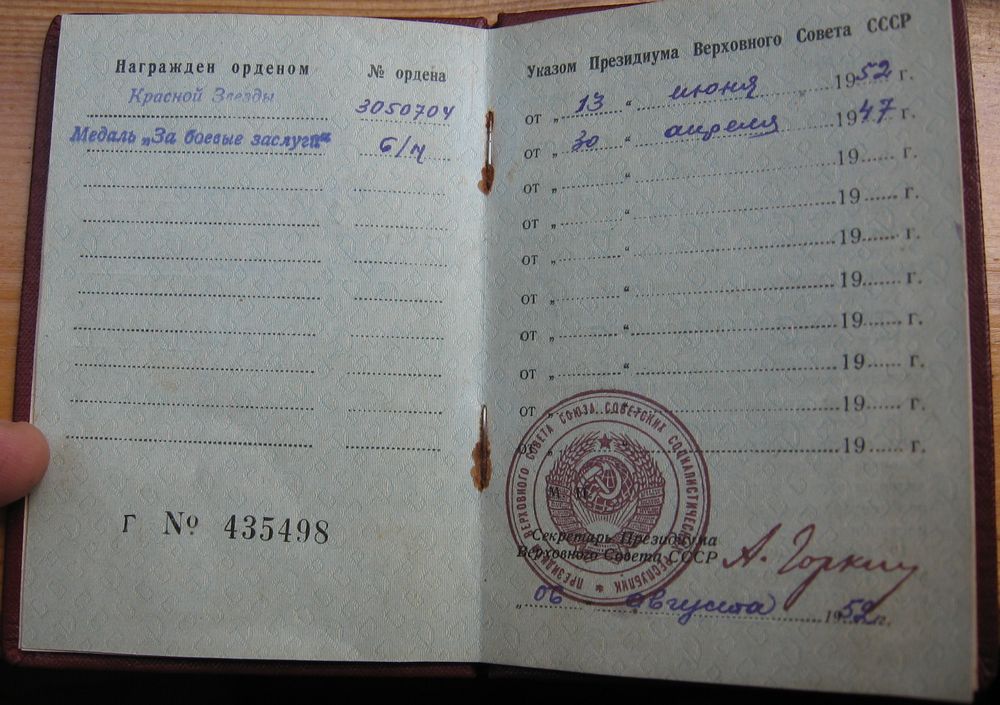 Награжден орденом
№ ордена
Красной Звезды
3050704
Медаль „За боевые заслуги“
б/н
Г № 435498
Указом Президиума Верховного Совета СССР
от „ 13 “ июня 1952 г.
от „ 30 “ апреля 1947 г.
от „ “ 19 г.
от „ “ 19 г.
от „ “ 19 г.
от „ “ 19 г.
от „ “ 19 г.
от „ “ 19 г.
от „ 19 г.
от „ 19 г.
ПРЕЗИДИУМ ВЕРХОВНОГО СОВЕТА СОЮЗА СОВЕТСКИХ СОЦИАЛИСТИЧЕСКИХ РЕСПУБЛИК
М. П.
Секретарь Президиума
Верховного Совета СССР
А. Горкин
„ 06 “ августа 1952 г.